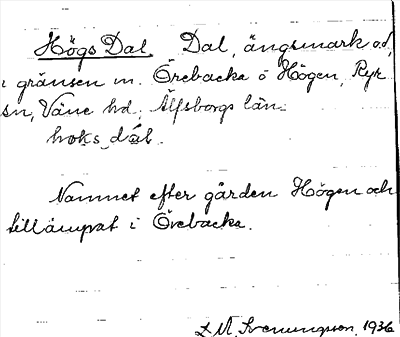 Högs Dal. Dal, ängsmark o.d,
i gränsen m. Örebacka o Högen, Ryr
sn, Väne hd, Älfsborgs län.
hoks dál.
Namnet efter gården Högen och
tillämpat i Örebacka.
Svenungsson, 1936